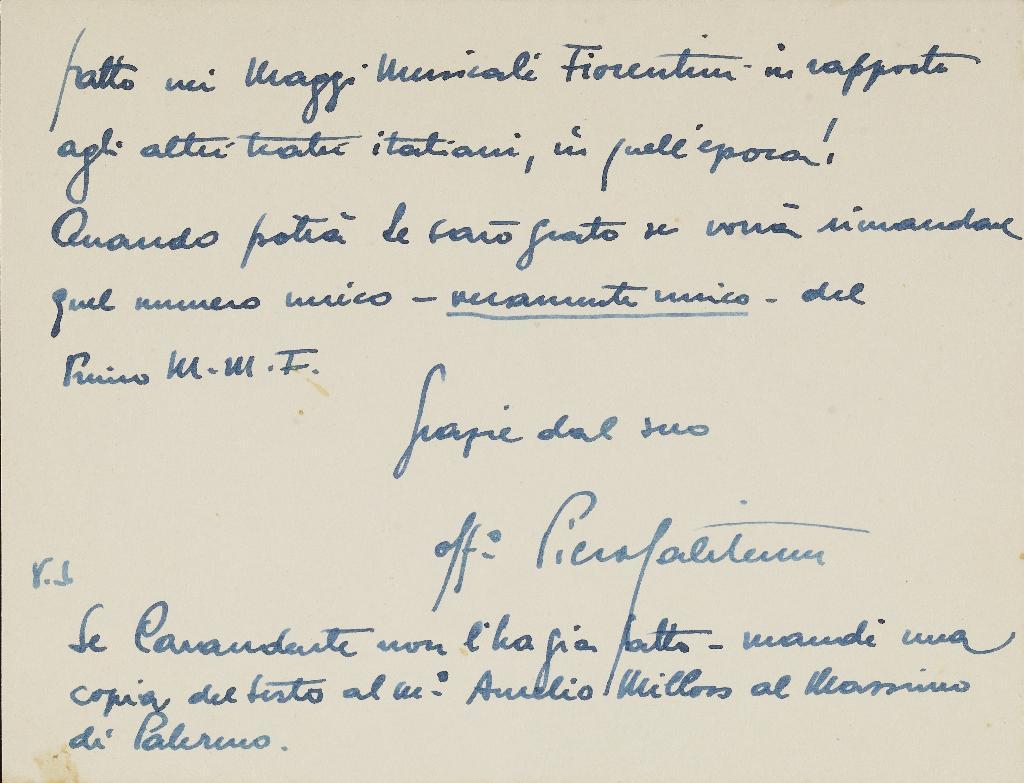 fatto nei Maggi Musicali Fiorentini in rapporto
agli altri teatri italiani, in quell'epoca!
Quando potrà Le sarò grato se vorrà rimandare
quel numero unico - veramente unico - del
Primo M.M.F.
Grazie dal suo
aff.o Piero
Se Cavandante non l'ha già fatto - mandi una
copia del testo al M.o Aurelio Milloss al Massimo
di Palermo.